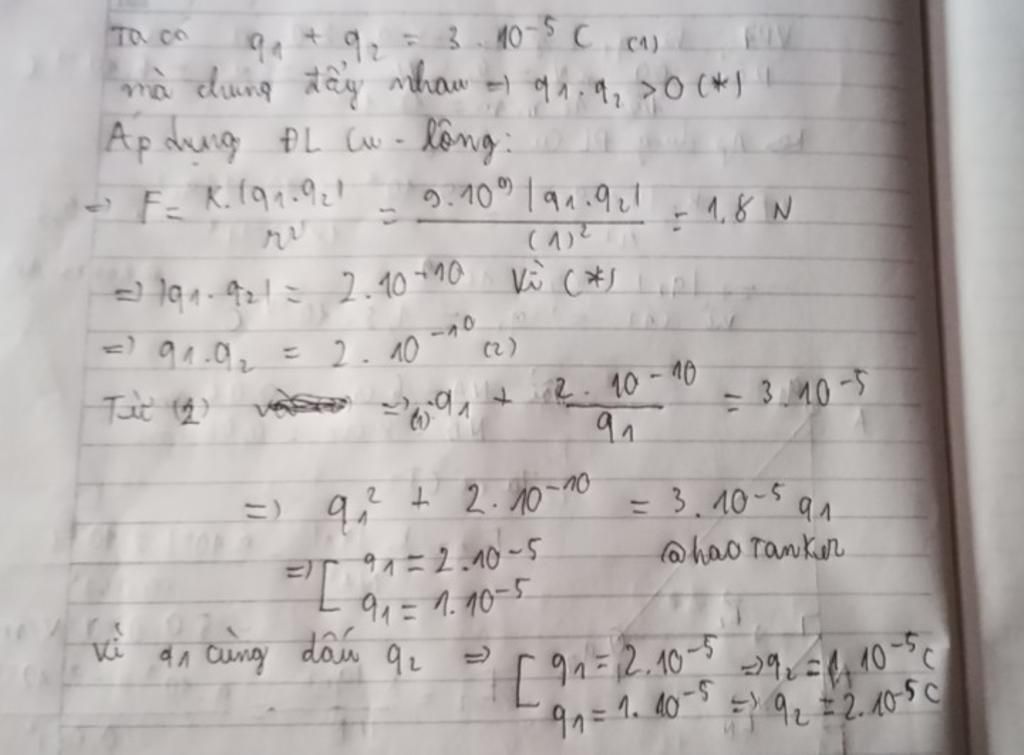 Ta có q1 + q2 = 3 . 10^-5 C (1)
mà chung đẩy nhau => q1 . q2 > 0 (*)
Áp dụng ĐL Cu - lông:
=> F = K.|q1.q2| / r² = 9.10^9 |q1.q2| / (1)² = 1,8 N
=> |q1 . q2| = 2.10^-10 Vì (*)
=> q1.q2 = 2 . 10^-10 (2)
Từ (2) =>(1) q1 + 2 . 10^-10 / q1 = 3.10^-5
=> q1² + 2.10^-10 = 3.10^-5 q1
=> [ q1 = 2.10^-5 @haoTanker
q1 = 1.10^-5
Vì q1 cùng dấu q2 => [ q1 = 2.10^-5 => q2 = 1.10^-5 C
q1 = 1.10^-5 => q2 = 2.10^-5 C